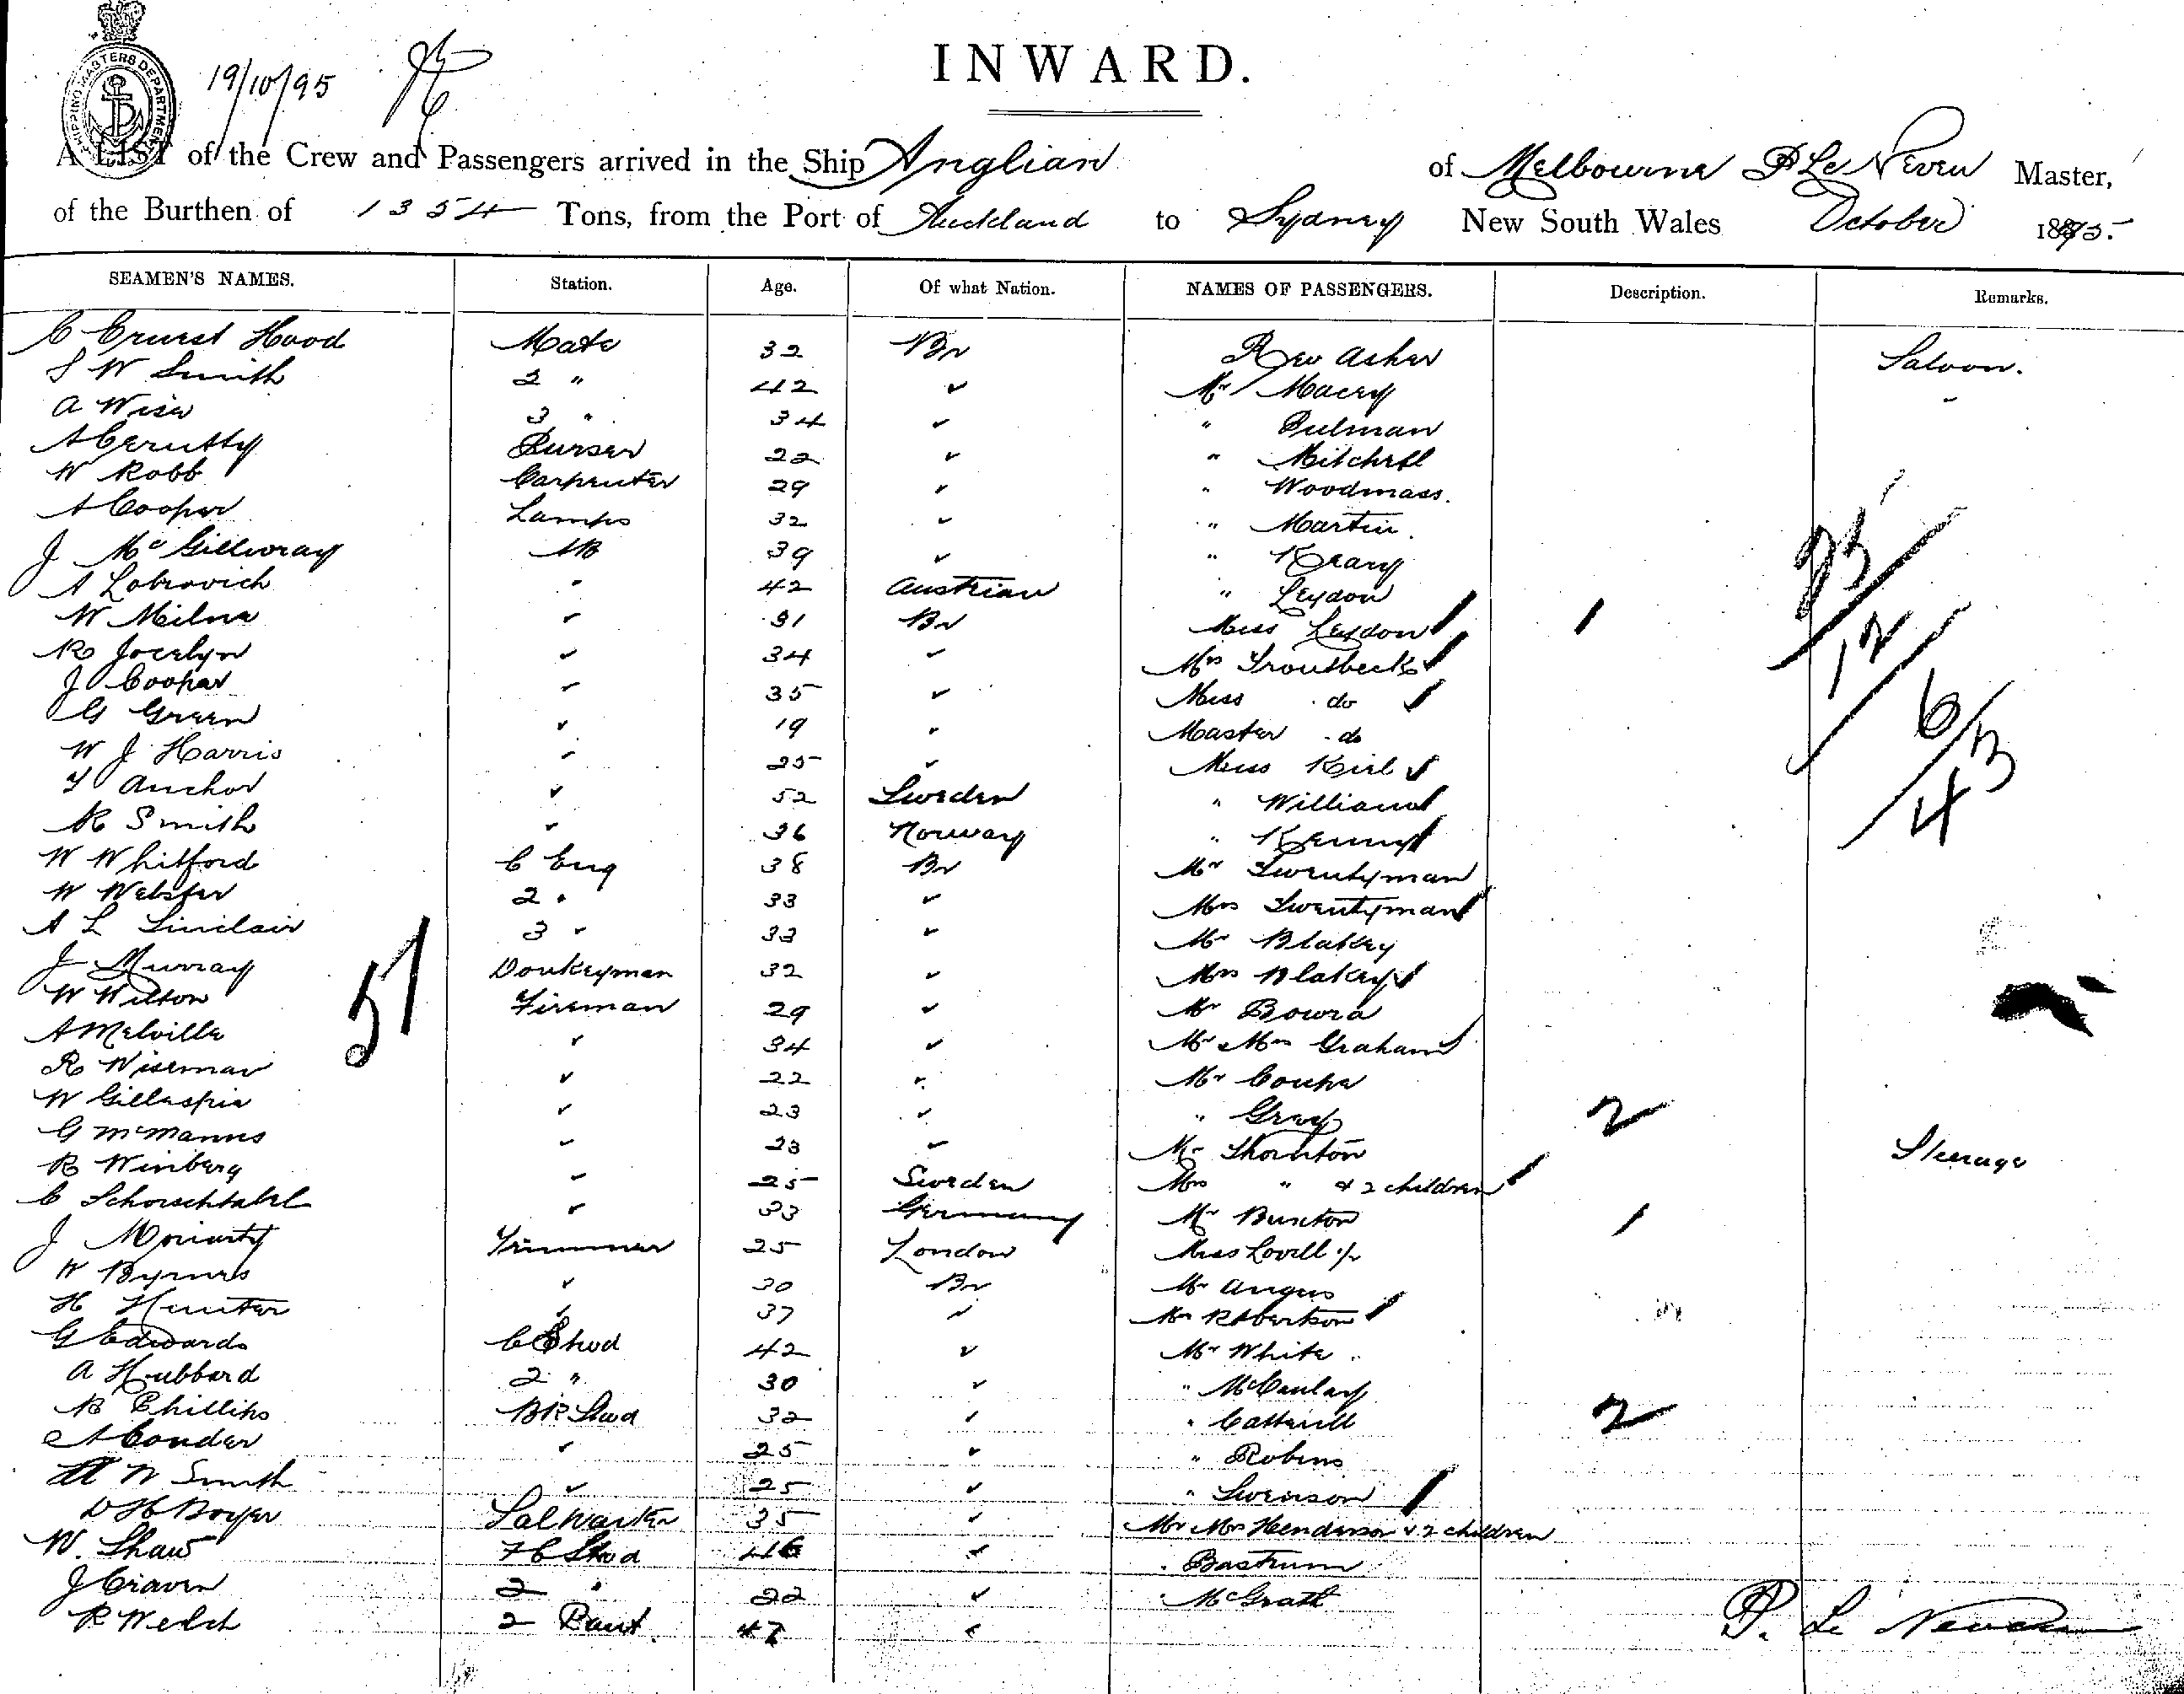 INWARD.
SHIPPING MASTERS DEPARTMENT
19/10/95
A LIST of the Crew and Passengers arrived in the Ship Anglian of Melbourne P Le Neveu Master,
of the Burthen of 1354 Tons, from the Port of Auckland to Sydney New South Wales October 1895.
SEAMEN'S NAMES. Station. Age. Of what Nation. NAMES OF PASSENGERS. Description. Remarks.
C Ernest Hood Mate 32 Br Rev Asher Saloon.
S W Smith 2 " 42 ✓ Mr Macey
A Wise 3 " 34 ✓ " Pulman
A Cerutty Purser 22 ✓ " Mitchell
W Robb Carpenter 29 ✓ " Woodmass.
A Cooper Lamps 32 ✓ " Martin.
J McGillivray AB 39 ✓ " Keary
A Lobrovich " 42 Austrian " Leydon
W Milne ✓ 31 Br Miss Leydon 1
R Jocelyn ✓ 34 ✓ Mrs Troutbeck
J Cooper ✓ 35 ✓ Miss do
G Green ✓ 19 " Master do
W J Harris ✓ 25 ✓ Miss Keil
Anchor ✓ 52 Sweden " Williams
R Smith ✓ 36 Norway " Kenny
W Whitford C Eng 38 Br Mr Twentyman
W Webster 2 " 33 ✓ Mrs Twentyman
A L Sinclair 3 " 33 ✓ Mr Blakey
J Murray Donkeyman 32 ✓ Mrs Blakey
W Wilton Fireman 29 ✓ Mr Bowra
A Melville ✓ 34 ✓ Mr & Mrs Graham
R Wiseman ✓ 22 ✓ Mr
W Gillespie ✓ 23 ✓ " Gray 2
G McManus ✓ 23 ✓ Mr Thornton Steerage
R Winberg ✓ 25 Sweden Mrs " & 2 children
C ✓ 33 Germany Mr Buxton 1
J Moriarty Trimmer 25 London Miss Lovell
W Byrnes ✓ 30 Br Mr Angus
H Hunter ✓ 37 ✓ Mrs Robertson
G Edwards C Stwd 42 ✓ Mr White
A Hubbard 2 " 30 ✓ " McCauley
B Phillips BR Stwd 32 ✓ " Catterill 2
A Conder ✓ 25 ✓ " Robins
W Smith ✓ 25 ✓ " Swenson
D H Boyer Sal Waiter 35 ✓ Mr Mrs Henderson & 2 children
W. Shaw F C Stwd 46 ✓ " Bastrum
J Craven 2 " 22 ✓ " McGrath
R Welch 2 Pant. 47 ✓
51
12
6
13
4
P. Le Neveu